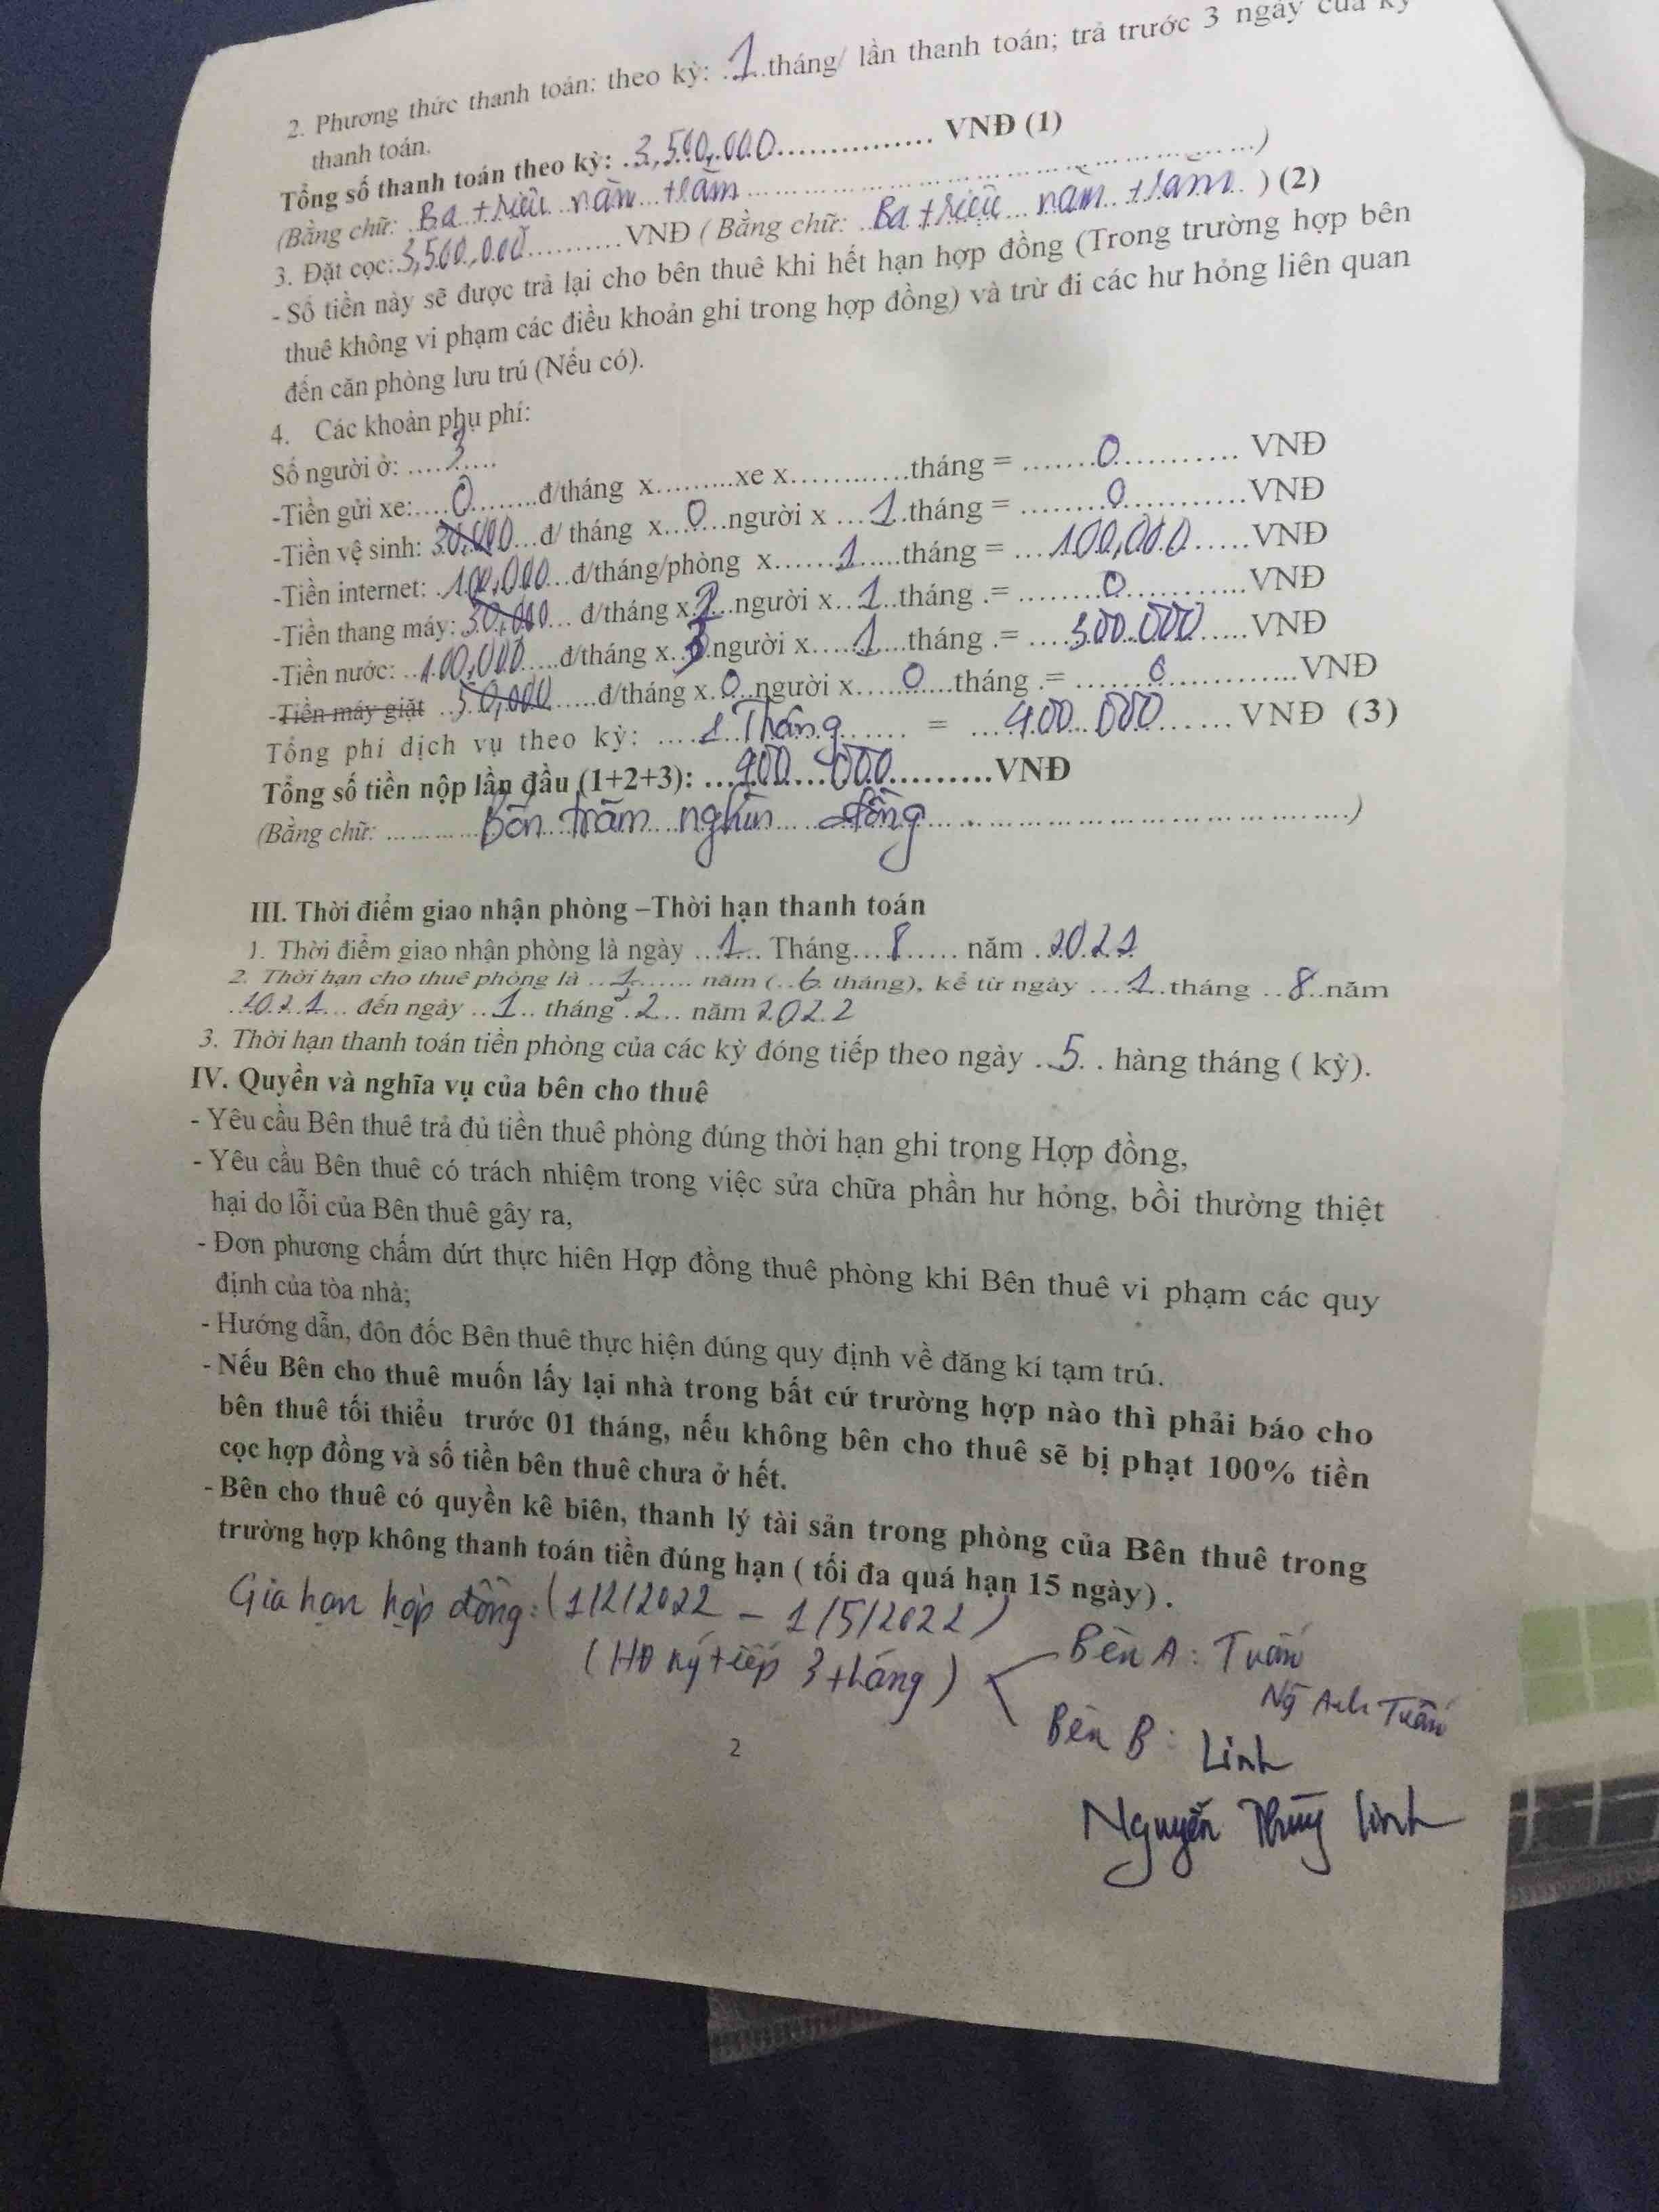 2. Phương thức thanh toán: theo kỳ: ..1..tháng/ lần thanh toán; trả trước 3 ngày của kỳ
thanh toán.
Tổng số thanh toán theo kỳ: .3,500,000................ VNĐ (1)
(Bằng chữ: .Ba triệu năm trăm..............................)
3. Đặt cọc:.3,500,000..........VNĐ ( Bằng chữ: ..Ba triệu năm trăm.. ) (2)
- Số tiền này sẽ được trả lại cho bên thuê khi hết hạn hợp đồng (Trong trường hợp bên
thuê không vi phạm các điều khoản ghi trong hợp đồng) và trừ đi các hư hỏng liên quan
đến căn phòng lưu trú (Nếu có).
4. Các khoản phụ phí:
Số người ở: .....3.....
-Tiền gửi xe:....0........đ/tháng x.........xe x............tháng = .......0............ VNĐ
-Tiền vệ sinh: 30,000...đ/ tháng x...0...người x ...1..tháng = ........0............VNĐ
-Tiền internet: .100,000...đ/tháng/phòng x......1.....tháng = ...100,000.....VNĐ
-Tiền thang máy: 30,000... đ/tháng x.2...người x..1..tháng .= ........0............VNĐ
-Tiền nước: ..100,000.....đ/tháng x..3.người x.....1...tháng .= ....300.000.....VNĐ
-Tiền máy giặt ..50,000.....đ/tháng x.0..người x.....0....tháng .= .......0............VNĐ
Tổng phí dịch vụ theo kỳ: ....1 Tháng...... = ...400.000...... VNĐ (3)
Tổng số tiền nộp lần đầu (1+2+3): ...400.000..........VNĐ
(Bằng chữ: ...........Bốn trăm nghìn đồng..............................)
III. Thời điểm giao nhận phòng –Thời hạn thanh toán
1. Thời điểm giao nhận phòng là ngày ...1... Tháng....8...... năm .2021
2. Thời hạn cho thuê phòng là ...1....... năm (..6. tháng), kể từ ngày ...1..tháng ..8..năm
.2021... đến ngày ..1.. tháng .2... năm 2022
3. Thời hạn thanh toán tiền phòng của các kỳ đóng tiếp theo ngày ..5. . hàng tháng ( kỳ).
IV. Quyền và nghĩa vụ của bên cho thuê
- Yêu cầu Bên thuê trả đủ tiền thuê phòng đúng thời hạn ghi trong Hợp đồng,
- Yêu cầu Bên thuê có trách nhiệm trong việc sửa chữa phần hư hỏng, bồi thường thiệt
hại do lỗi của Bên thuê gây ra,
- Đơn phương chấm dứt thực hiên Hợp đồng thuê phòng khi Bên thuê vi phạm các quy
định của tòa nhà;
- Hướng dẫn, đôn đốc Bên thuê thực hiện đúng quy định về đăng kí tạm trú.
- Nếu Bên cho thuê muốn lấy lại nhà trong bất cứ trường hợp nào thì phải báo cho
bên thuê tối thiểu trước 01 tháng, nếu không bên cho thuê sẽ bị phạt 100% tiền
cọc hợp đồng và số tiền bên thuê chưa ở hết.
- Bên cho thuê có quyền kê biên, thanh lý tài sản trong phòng của Bên thuê trong
trường hợp không thanh toán tiền đúng hạn ( tối đa quá hạn 15 ngày) .
Gia hạn hợp đồng: (1/2/2022 – 1/5/2022)
(HĐ ký tiếp 3 tháng)
Bên A: Tuấn
Ng Anh Tuấn
Bên B: Linh
Nguyễn Thùy Linh
2